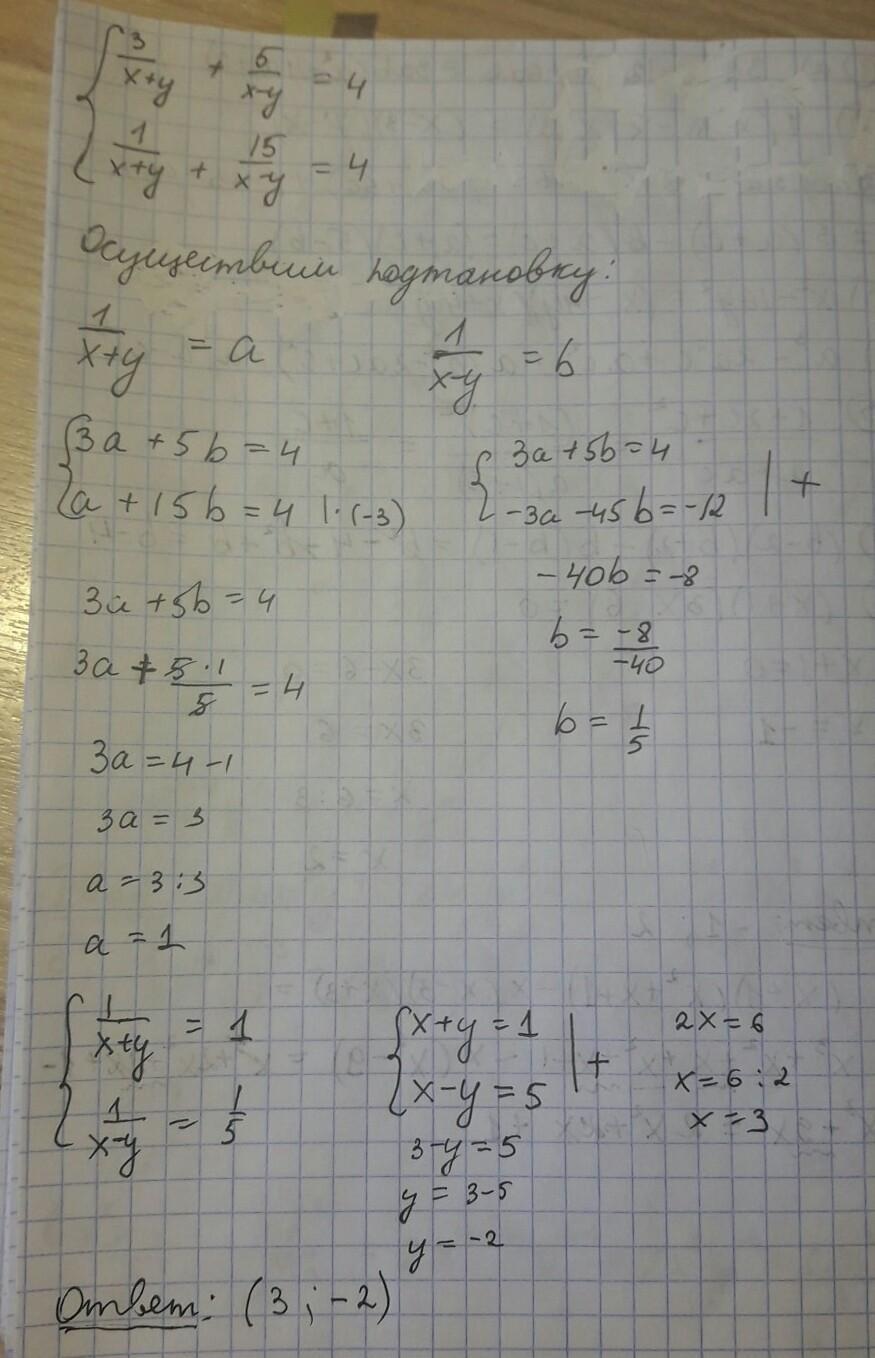 { 3/(x+y) + 5/(x-y) = 4
1/(x+y) + 15/(x-y) = 4
Осуществим подтановку:
1/(x+y) = a 1/(x-y) = b
{ 3a + 5b = 4
a + 15b = 4 |·(-3)
{ 3a + 5b = 4
-3a - 45b = -12 | +
-40b = -8
b = -8/-40
b = 1/5
3a + 5b = 4
3a + 5·1/5 = 4
3a = 4 - 1
3a = 3
a = 3 : 3
a = 1
{ 1/(x+y) = 1
1/(x-y) = 1/5
{ x + y = 1
x - y = 5 | +
2x = 6
x = 6 : 2
x = 3
3 - y = 5
y = 3 - 5
y = -2
Ответ: (3 ; -2)